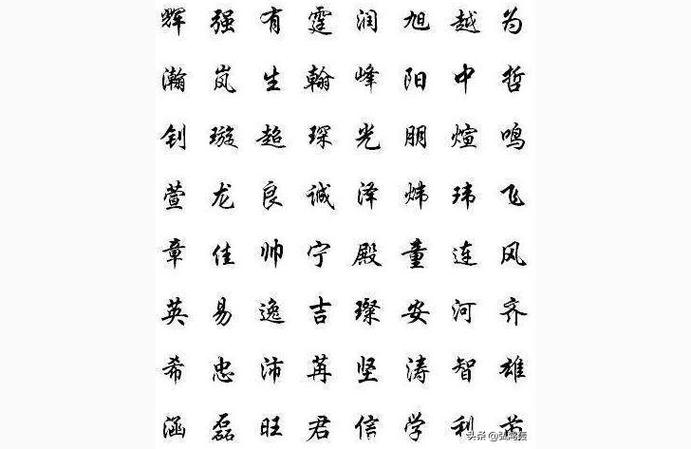 辉强有霆润旭越为
瀚岚生翰峰阳中哲
钊璇超琛光朋煊鸣
萱龙良诚泽炜玮飞
章佳帅宁殿童连风
英易逸吉璨安河齐
希忠沛苒坚涛智雄
涵磊旺君信学利
头条 @弘